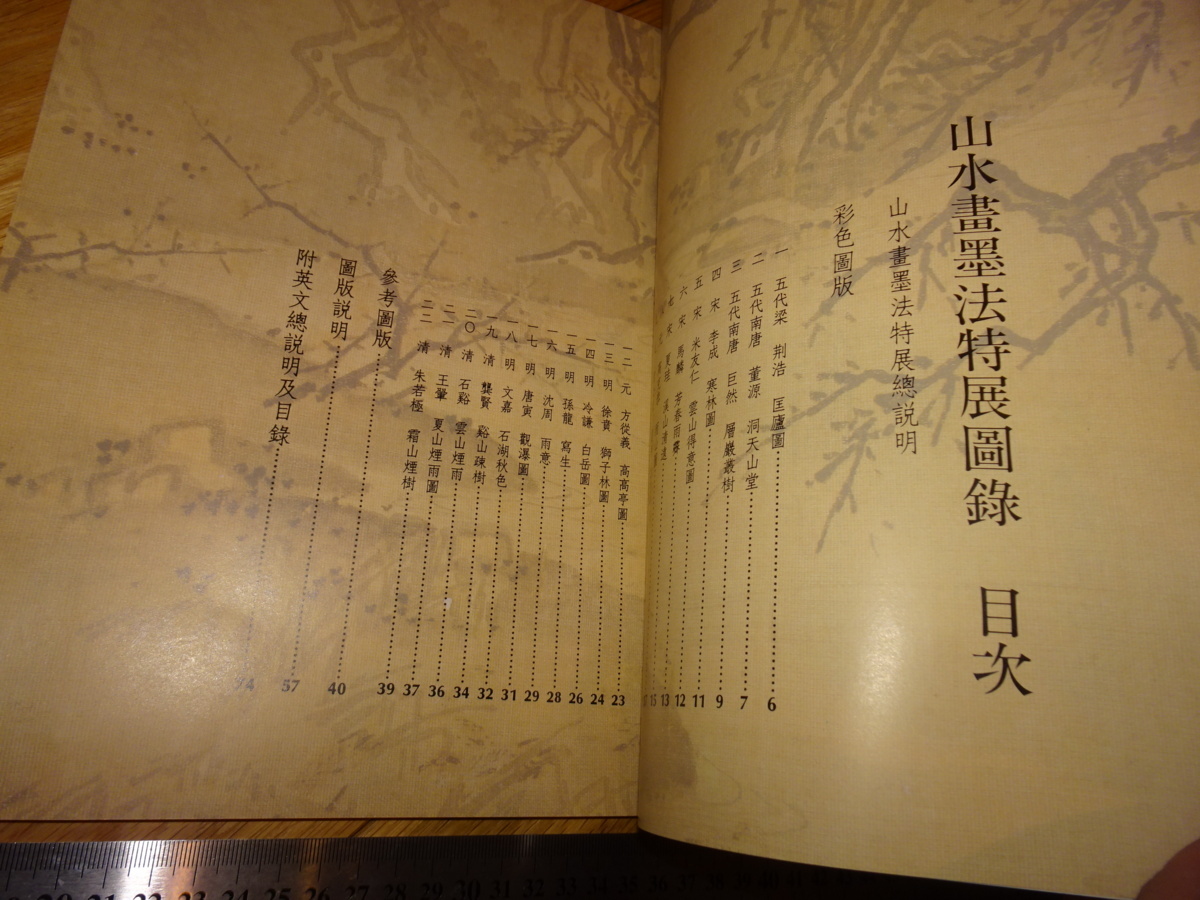 山水畫墨法特展圖錄 目次
山水畫墨法特展總說明
彩色圖版
一 五代梁 荆浩 匡廬圖 6
二 五代南唐 董源 洞天山堂 7
三 五代南唐 巨然 層巖叢樹 9
四 宋 李成 寒林圖 11
五 宋 米友仁 雲山得意圖 12
六 宋 馬麟 芳春雨霽 13
七 宋 夏珪 溪山清遠 15
一二 元 方從義 高高亭圖 23
一三 明 徐賁 獅子林圖 24
一四 明 冷謙 白岳圖 26
一五 明 孫龍 寫生 28
一六 明 沈周 雨意 29
一七 明 唐寅 觀瀑圖 31
一八 明 文嘉 石湖秋色 32
一九 清 龔賢 谿山疎樹 34
二〇 清 石谿 雲山煙雨 36
二一 清 王翬 夏山煙雨圖 37
二二 清 朱若極 霜山煙樹 39
參考圖版 40
圖版說明 57
附英文總說明及目錄 74
21 22 23 24 25 26 27 28 29 30 31 32 33 34 35 36 37 38 39 40